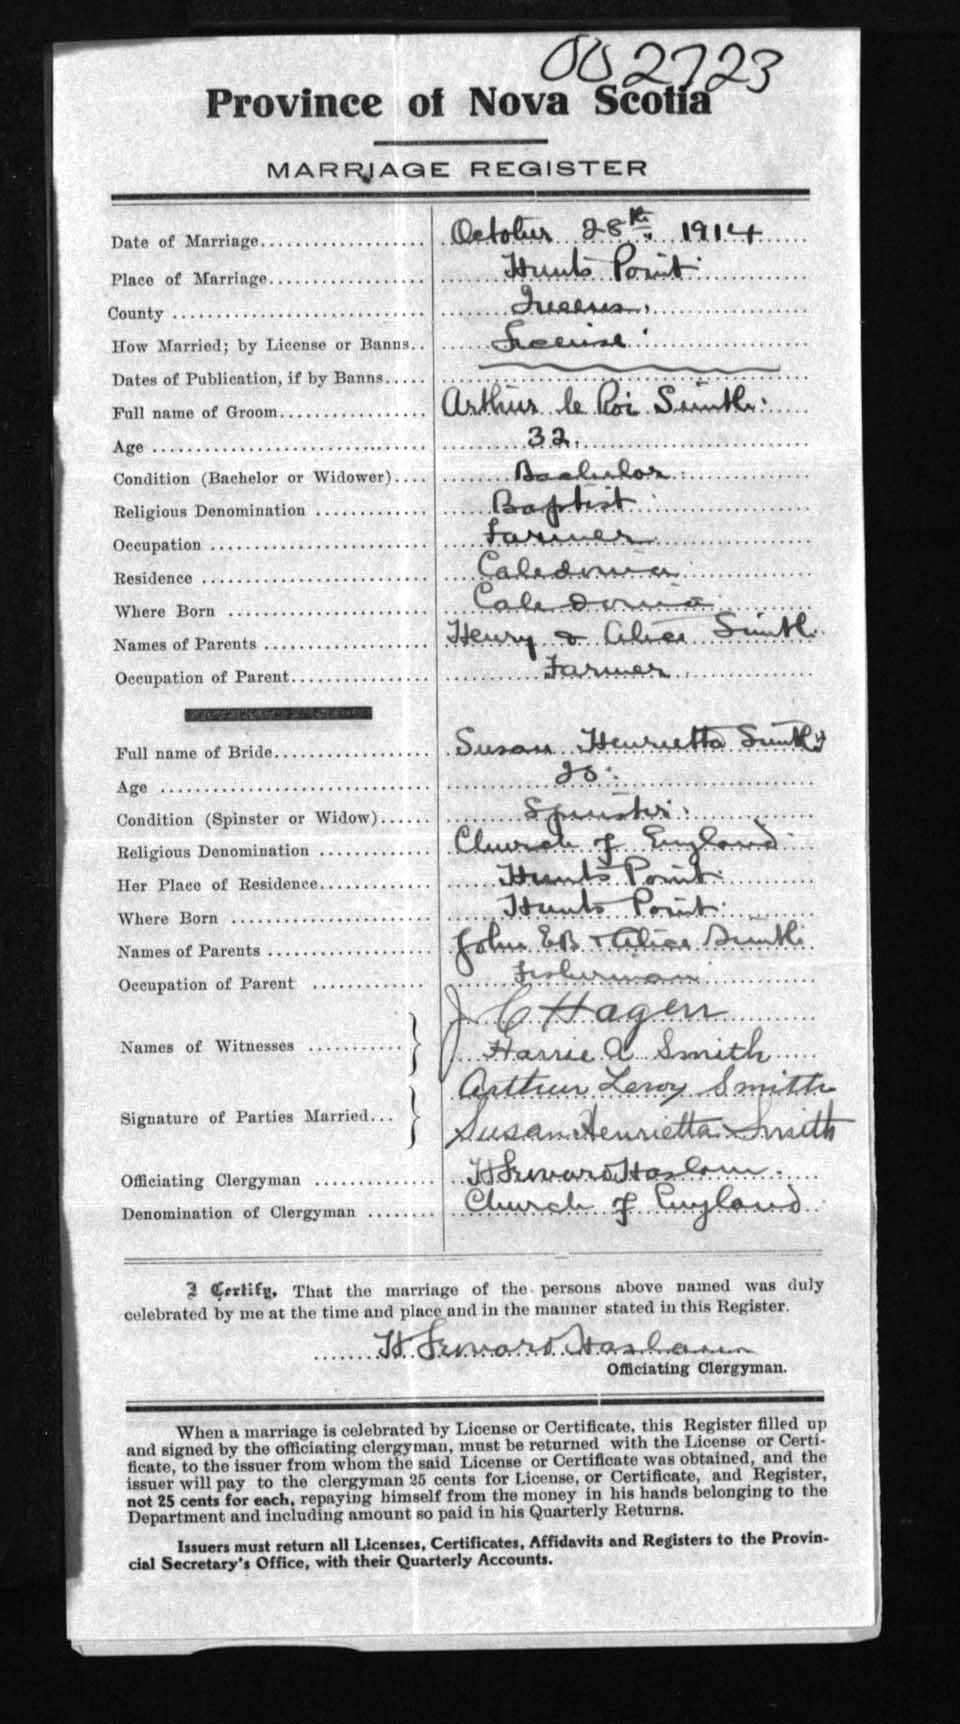 002723
Province of Nova Scotia
MARRIAGE REGISTER
Date of Marriage.................... October 28th, 1914
Place of Marriage................... Hunts Point
County ............................. Queens.
How Married; by License or Banns.. License
Dates of Publication, if by Banns.....
Full name of Groom................. Arthur le Roi Smith.
Age ............................... 32.
Condition (Bachelor or Widower).... Bachelor
Religious Denomination ............. Baptist
Occupation ......................... Farmer
Residence .......................... Caledonia
Where Born ........................ Caledonia
Names of Parents ................... Henry & Alice Smith
Occupation of Parent................ Farmer
Full name of Bride.................. Susan Henrietta Smith
Age ................................ 20
Condition (Spinster or Widow)...... Spinster
Religious Denomination ............. Church of England
Her Place of Residence.............. Hunts Point
Where Born ........................ Hunts Point
Names of Parents ................... John EB & Alice Smith
Occupation of Parent .............. Fisherman
Names of Witnesses ........... } J C Hagen
Harrie A Smith
Signature of Parties Married... } Arthur Leroy Smith
Susan Henrietta Smith
Officiating Clergyman .............. H Seward Haslam
Denomination of Clergyman ........ Church of England
I Certify, That the marriage of the persons above named was duly
celebrated by me at the time and place and in the manner stated in this Register.
H Seward Haslam
Officiating Clergyman.
When a marriage is celebrated by License or Certificate, this Register filled up
and signed by the officiating clergyman, must be returned with the License or Certi-
ficate, to the issuer from whom the said License or Certificate was obtained, and the
issuer will pay to the clergyman 25 cents for License, or Certificate, and Register,
not 25 cents for each, repaying himself from the money in his hands belonging to the
Department and including amount so paid in his Quarterly Returns.
Issuers must return all Licenses, Certificates, Affidavits and Registers to the Provin-
cial Secretary's Office, with their Quarterly Accounts.